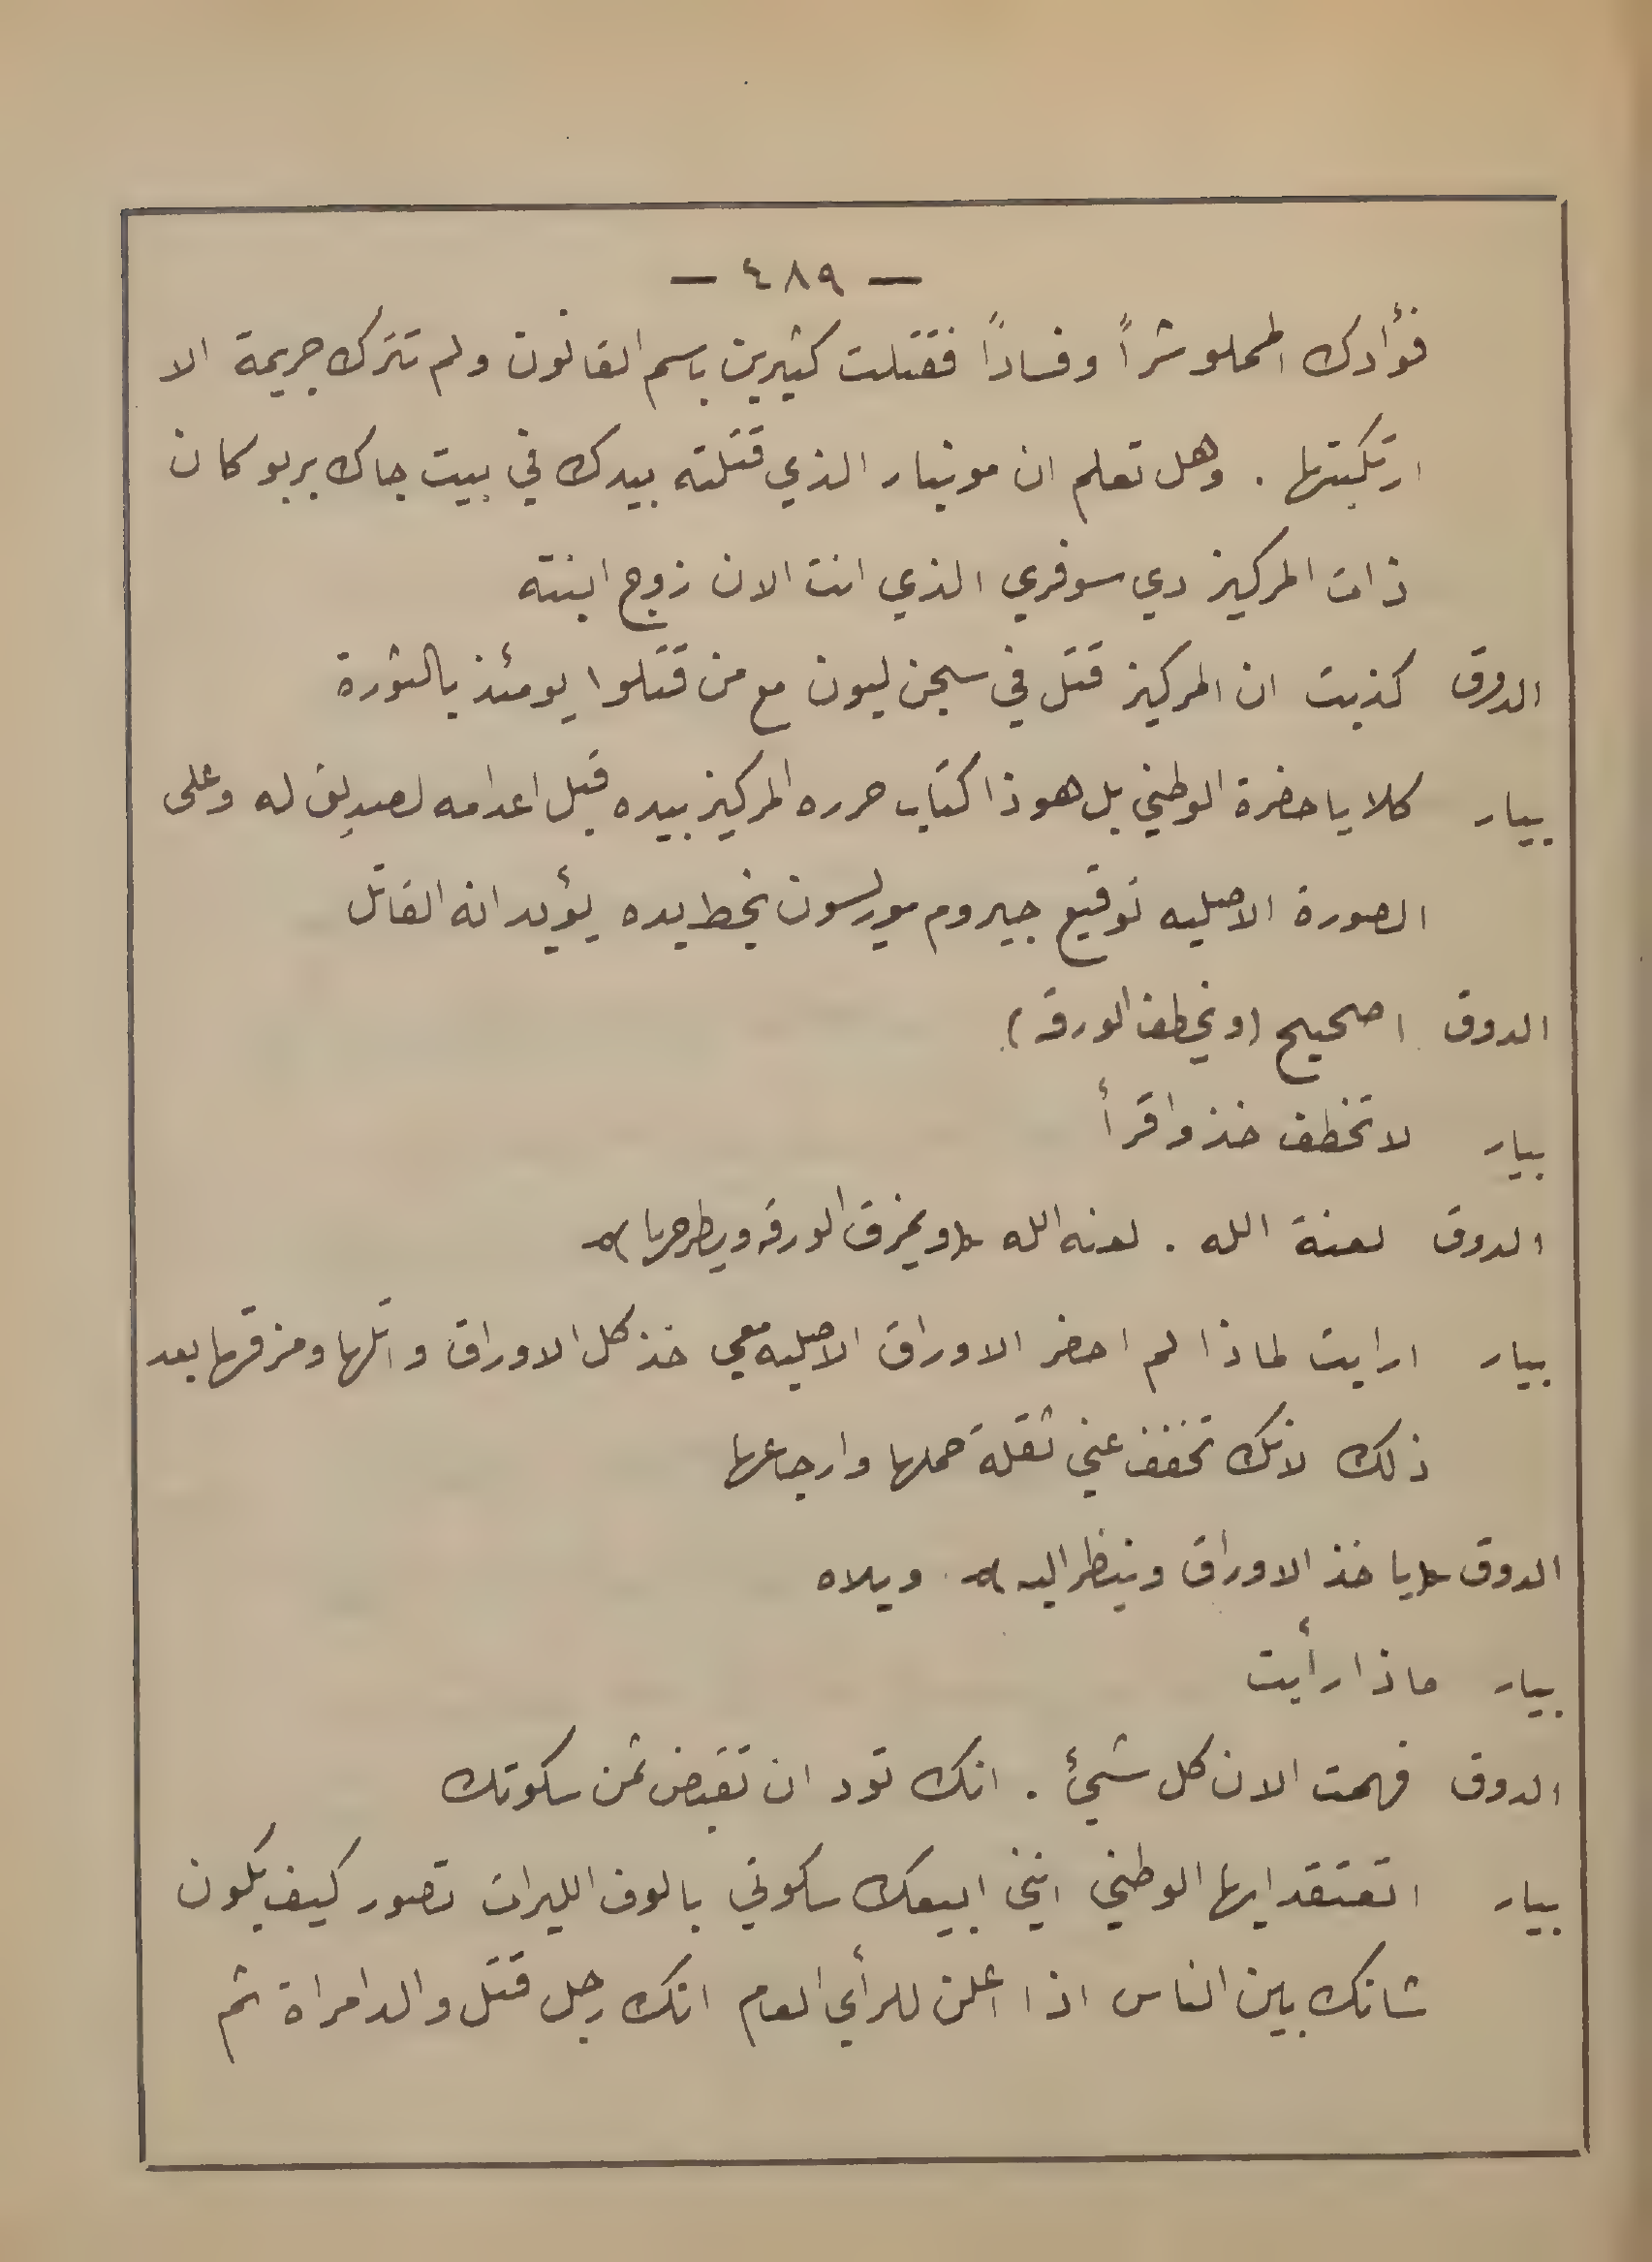 — ٤٨٩ —
فؤادك المملو شراً وفساداً فقتلت كثيرين باسم القانون ولم تترك جريمة الا
ارتكبتها . وهل تعلم ان مونيار الذي قتلته بيدك في بيت جاك بربو كان
ذات المركيز دي سوفري الذي انت الان زوج ابنته
الدوق كذبت ان المركيز قتل في سجن ليون مع من قتلوا يومئذ بالثورة
بيار كلا يا حضرة الوطني بل هوذا كتاب حرره المركيز بيده قبل اعدامه لصديق له وعلى
الصورة الاصليه توقيع جيروم بخط يده يؤيد انه القاتل
الدوق اصحيح (ويخطف الورقه)
بيار لا تخطف خذ واقرأ
الدوق لعنة الله . لعنه الله (ويمزق الورقه ويطرحها)
بيار ارايت لماذا لم احضر الاوراق الاصليه معي خذ كل الاوراق واتلها ومزقها بعد
ذلك لانك تخفف عني ثقلة حملها وارجاعها
الدوق (ياخذ الاوراق وينظر اليه) ويلاه
بيار ماذا رأيت
الدوق فهمت الان كل شيئ . انك تود ان تقبض ثمن سكوتك
بيار اتعتقد ايها الوطني انني ابيعك سكوتي بالوف الليرات تصور كيف يكون
شانك بين الناس اذا اعلن للرأي العام انك رجل قتل والد امراة ثم